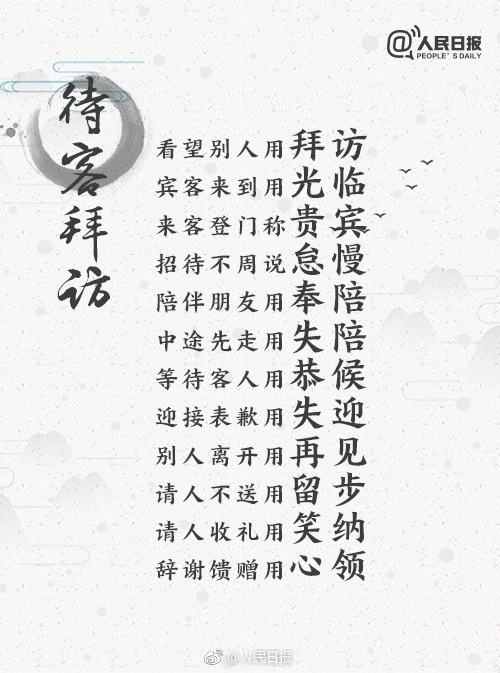 @人民日报
PEOPLE'S DAILY
待客拜访
看望别人用拜访
宾客来到用光临
来客登门称贵宾
招待不周说怠慢
陪伴朋友用奉陪
中途先走用失陪
等待客人用恭候
迎接表歉用失迎
别人离开用再见
请人不送用留步
请人收礼用笑纳
辞谢馈赠用心领
@人民日报